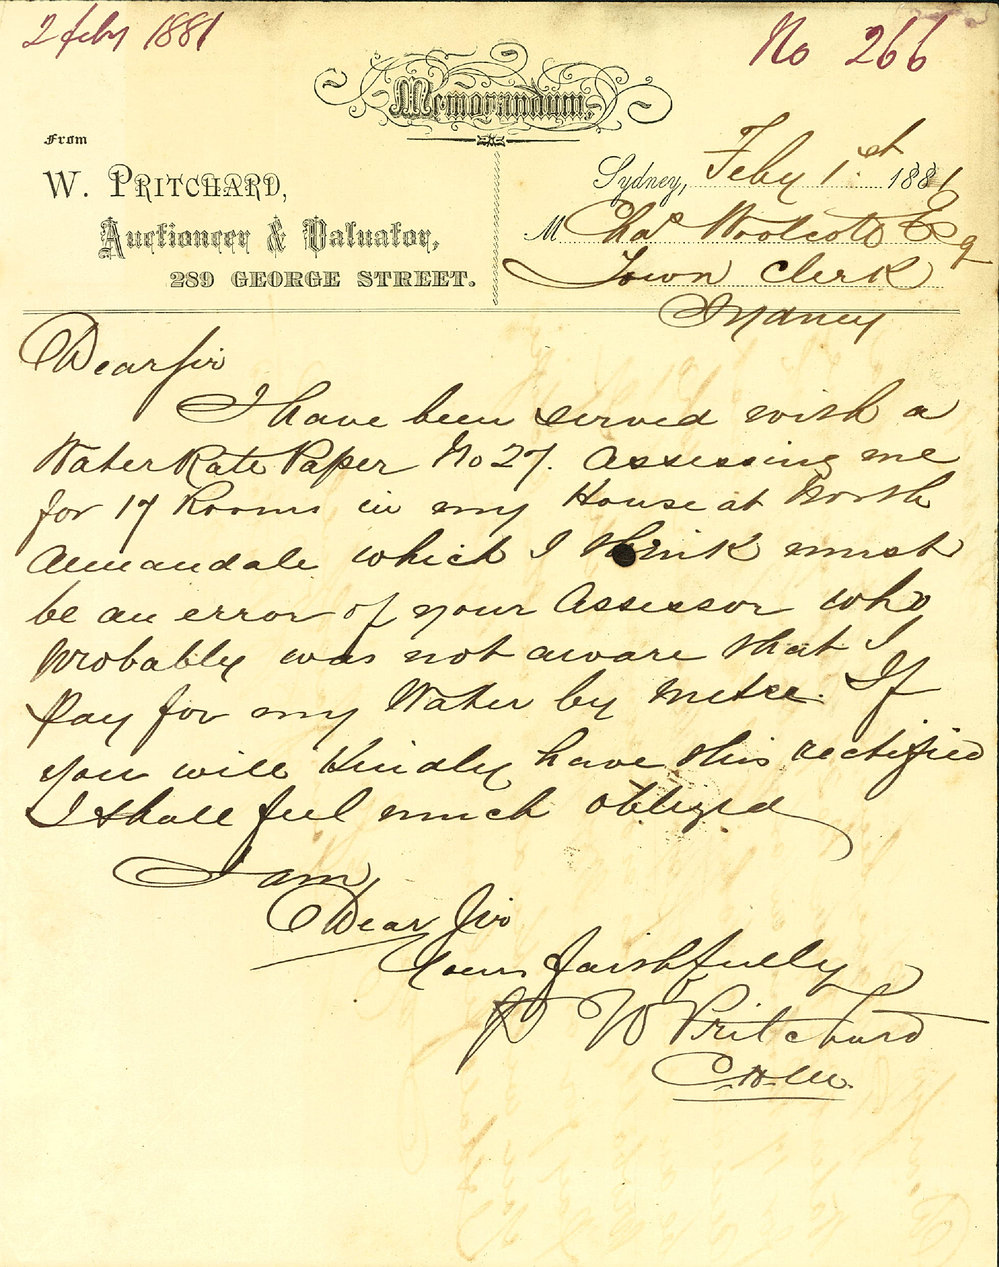 2 feby 1881
No 266
Memorandum,
From
W. PRITCHARD,
Auctioneer & Valuator,
289 GEORGE STREET.
Sydney, Feby 1st 1881
M Chas Woolcott Esq
Town Clerk
Sydney
Dear Sir
I have been served with a
Water Rate Paper No 27. assessing me
for 17 Rooms in my House at North
Annandale which I think must
be an error of your assessor who
probably was not aware that I
Pay for my Water by metre. If
you will kindly have this rectified
I shall feel much obliged
I am
Dear Sir
Yours faithfully
W Pritchard